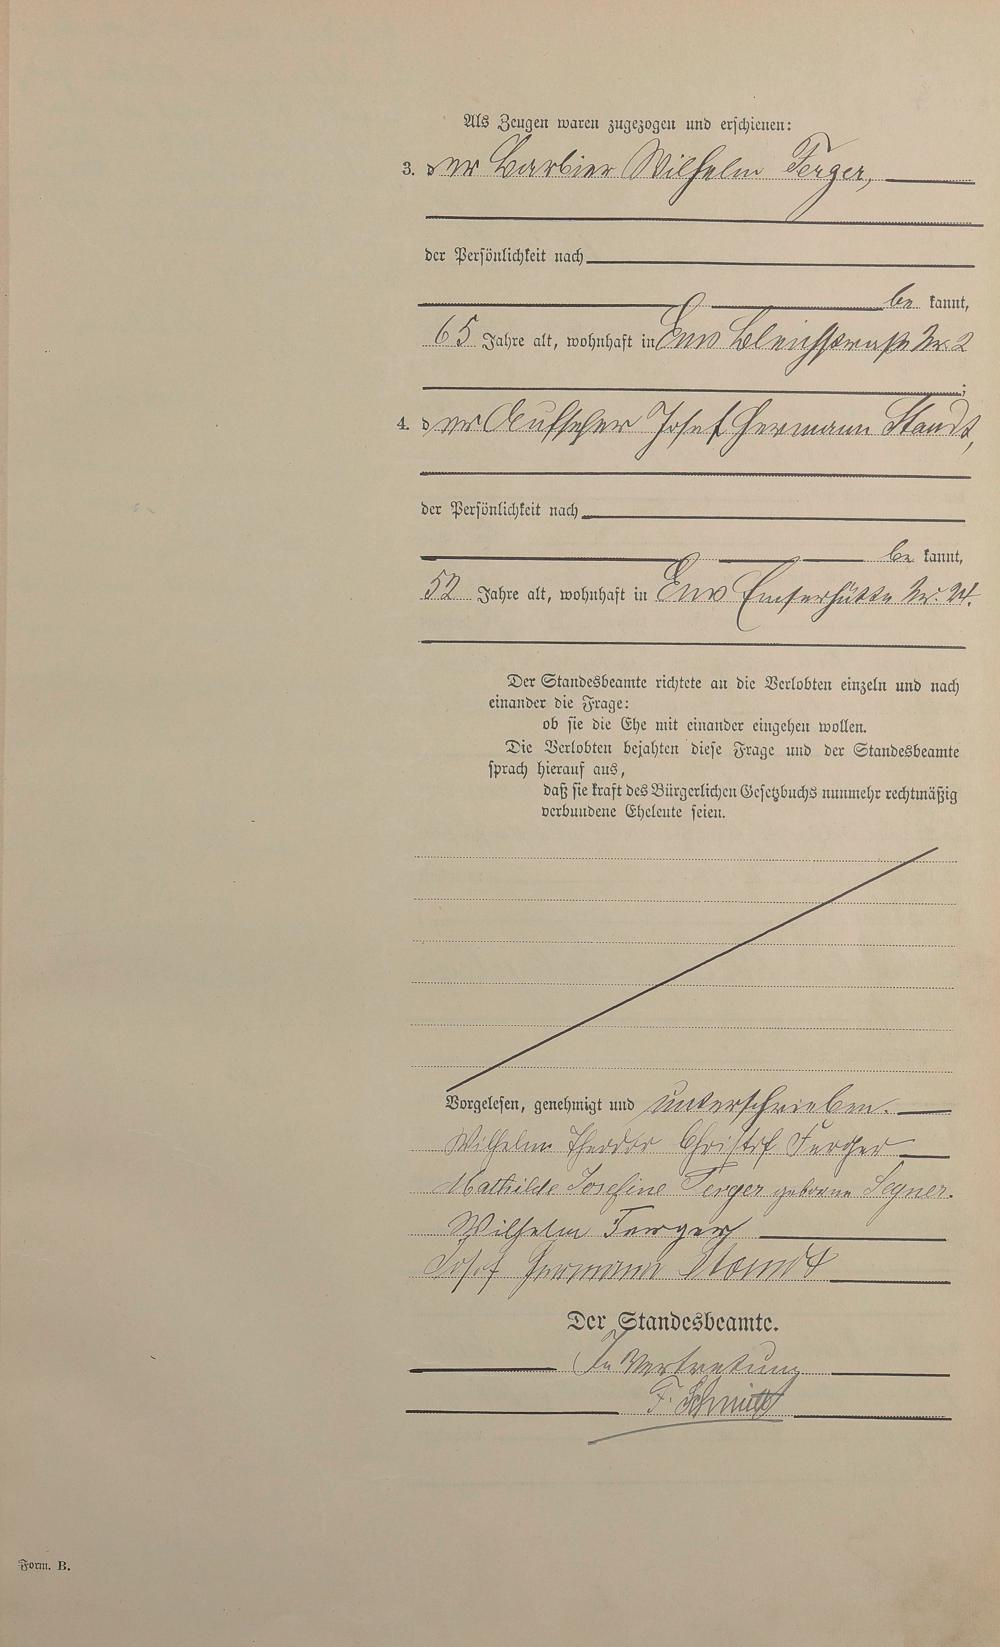 Als Zeugen waren zugezogen und erschienen:
3. der Barbier Wilhelm Ferger,
der Persönlichkeit nach
be kannt,
65 Jahre alt, wohnhaft in Ems Bleichstraße Nr. 2
;
4. der Aufseher Josef Hermann Staudt,
der Persönlichkeit nach
be kannt,
52 Jahre alt, wohnhaft in Ems Emserhütte Nr. 24.
Der Standesbeamte richtete an die Verlobten einzeln und nach
einander die Frage:
ob sie die Ehe mit einander eingehen wollen.
Die Verlobten bejahten diese Frage und der Standesbeamte
sprach hierauf aus,
daß sie kraft des Bürgerlichen Gesetzbuchs nunmehr rechtmäßig
verbundene Eheleute seien.
Vorgelesen, genehmigt und unterschrieben.
Wilhelm Theodor Christof Ferger
Mathilde Josefine Ferger geborene Segner.
Wilhelm Ferger
Josef Hermann Staudt
Der Standesbeamte.
In Vertretung
F. Schmitt
Form. B.